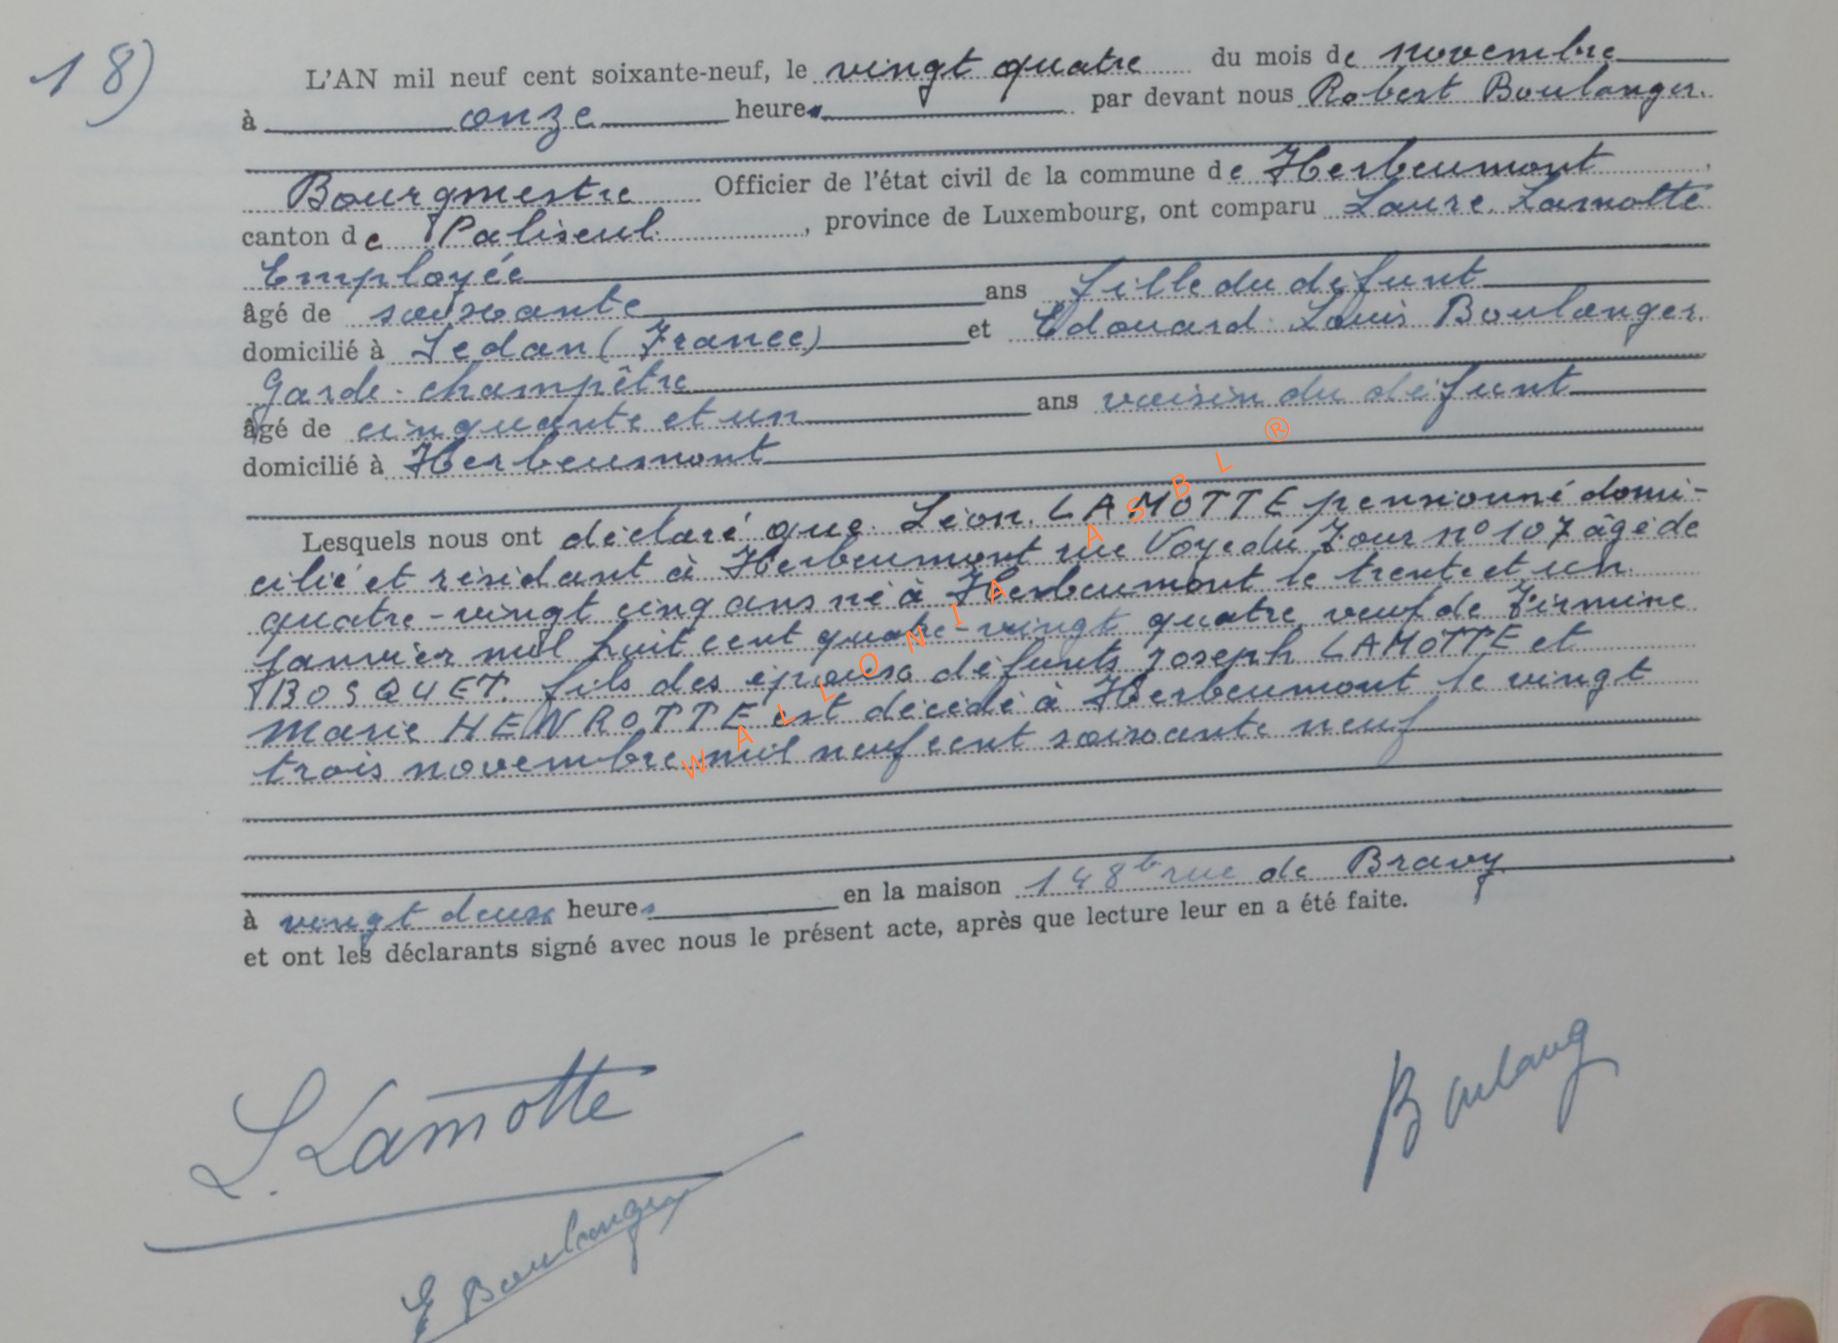 18)
L'AN mil neuf cent soixante-neuf, le vingt quatre du mois de novembre
à onze heures par devant nous Robert Boulanger.
Bourgmestre Officier de l'état civil de la commune de Herbeumont,
canton de Paliseul, province de Luxembourg, ont comparu Laure Lamotte
Employée
âgé de soixante ans fille du défunt
domicilié à Sedan (France) et Edouard Louis Boulanger.
Garde-champêtre
âgé de cinquante et un ans voisin du défunt
domicilié à Herbeumont
Lesquels nous ont déclaré que Léon LAMOTTE pensionné domi-
cilié et résidant à Herbeumont rue Voye du Four n° 107 âgé de
quatre-vingt cinq ans né à Herbeumont le trente et un
janvier mil huit cent quatre-vingt quatre veuf de Firmine
BOSQUET. fils des époux défunts Joseph LAMOTTE et
Marie HENROTTE est décédé à Herbeumont le vingt
trois novembre mil neuf cent soixante neuf
à vingt deux heures en la maison 148b rue de Bravy
et ont les déclarants signé avec nous le présent acte, après que lecture leur en a été faite.
WALLONIA ASBL ®
L. Lamotte
Boulang
E Boulanger